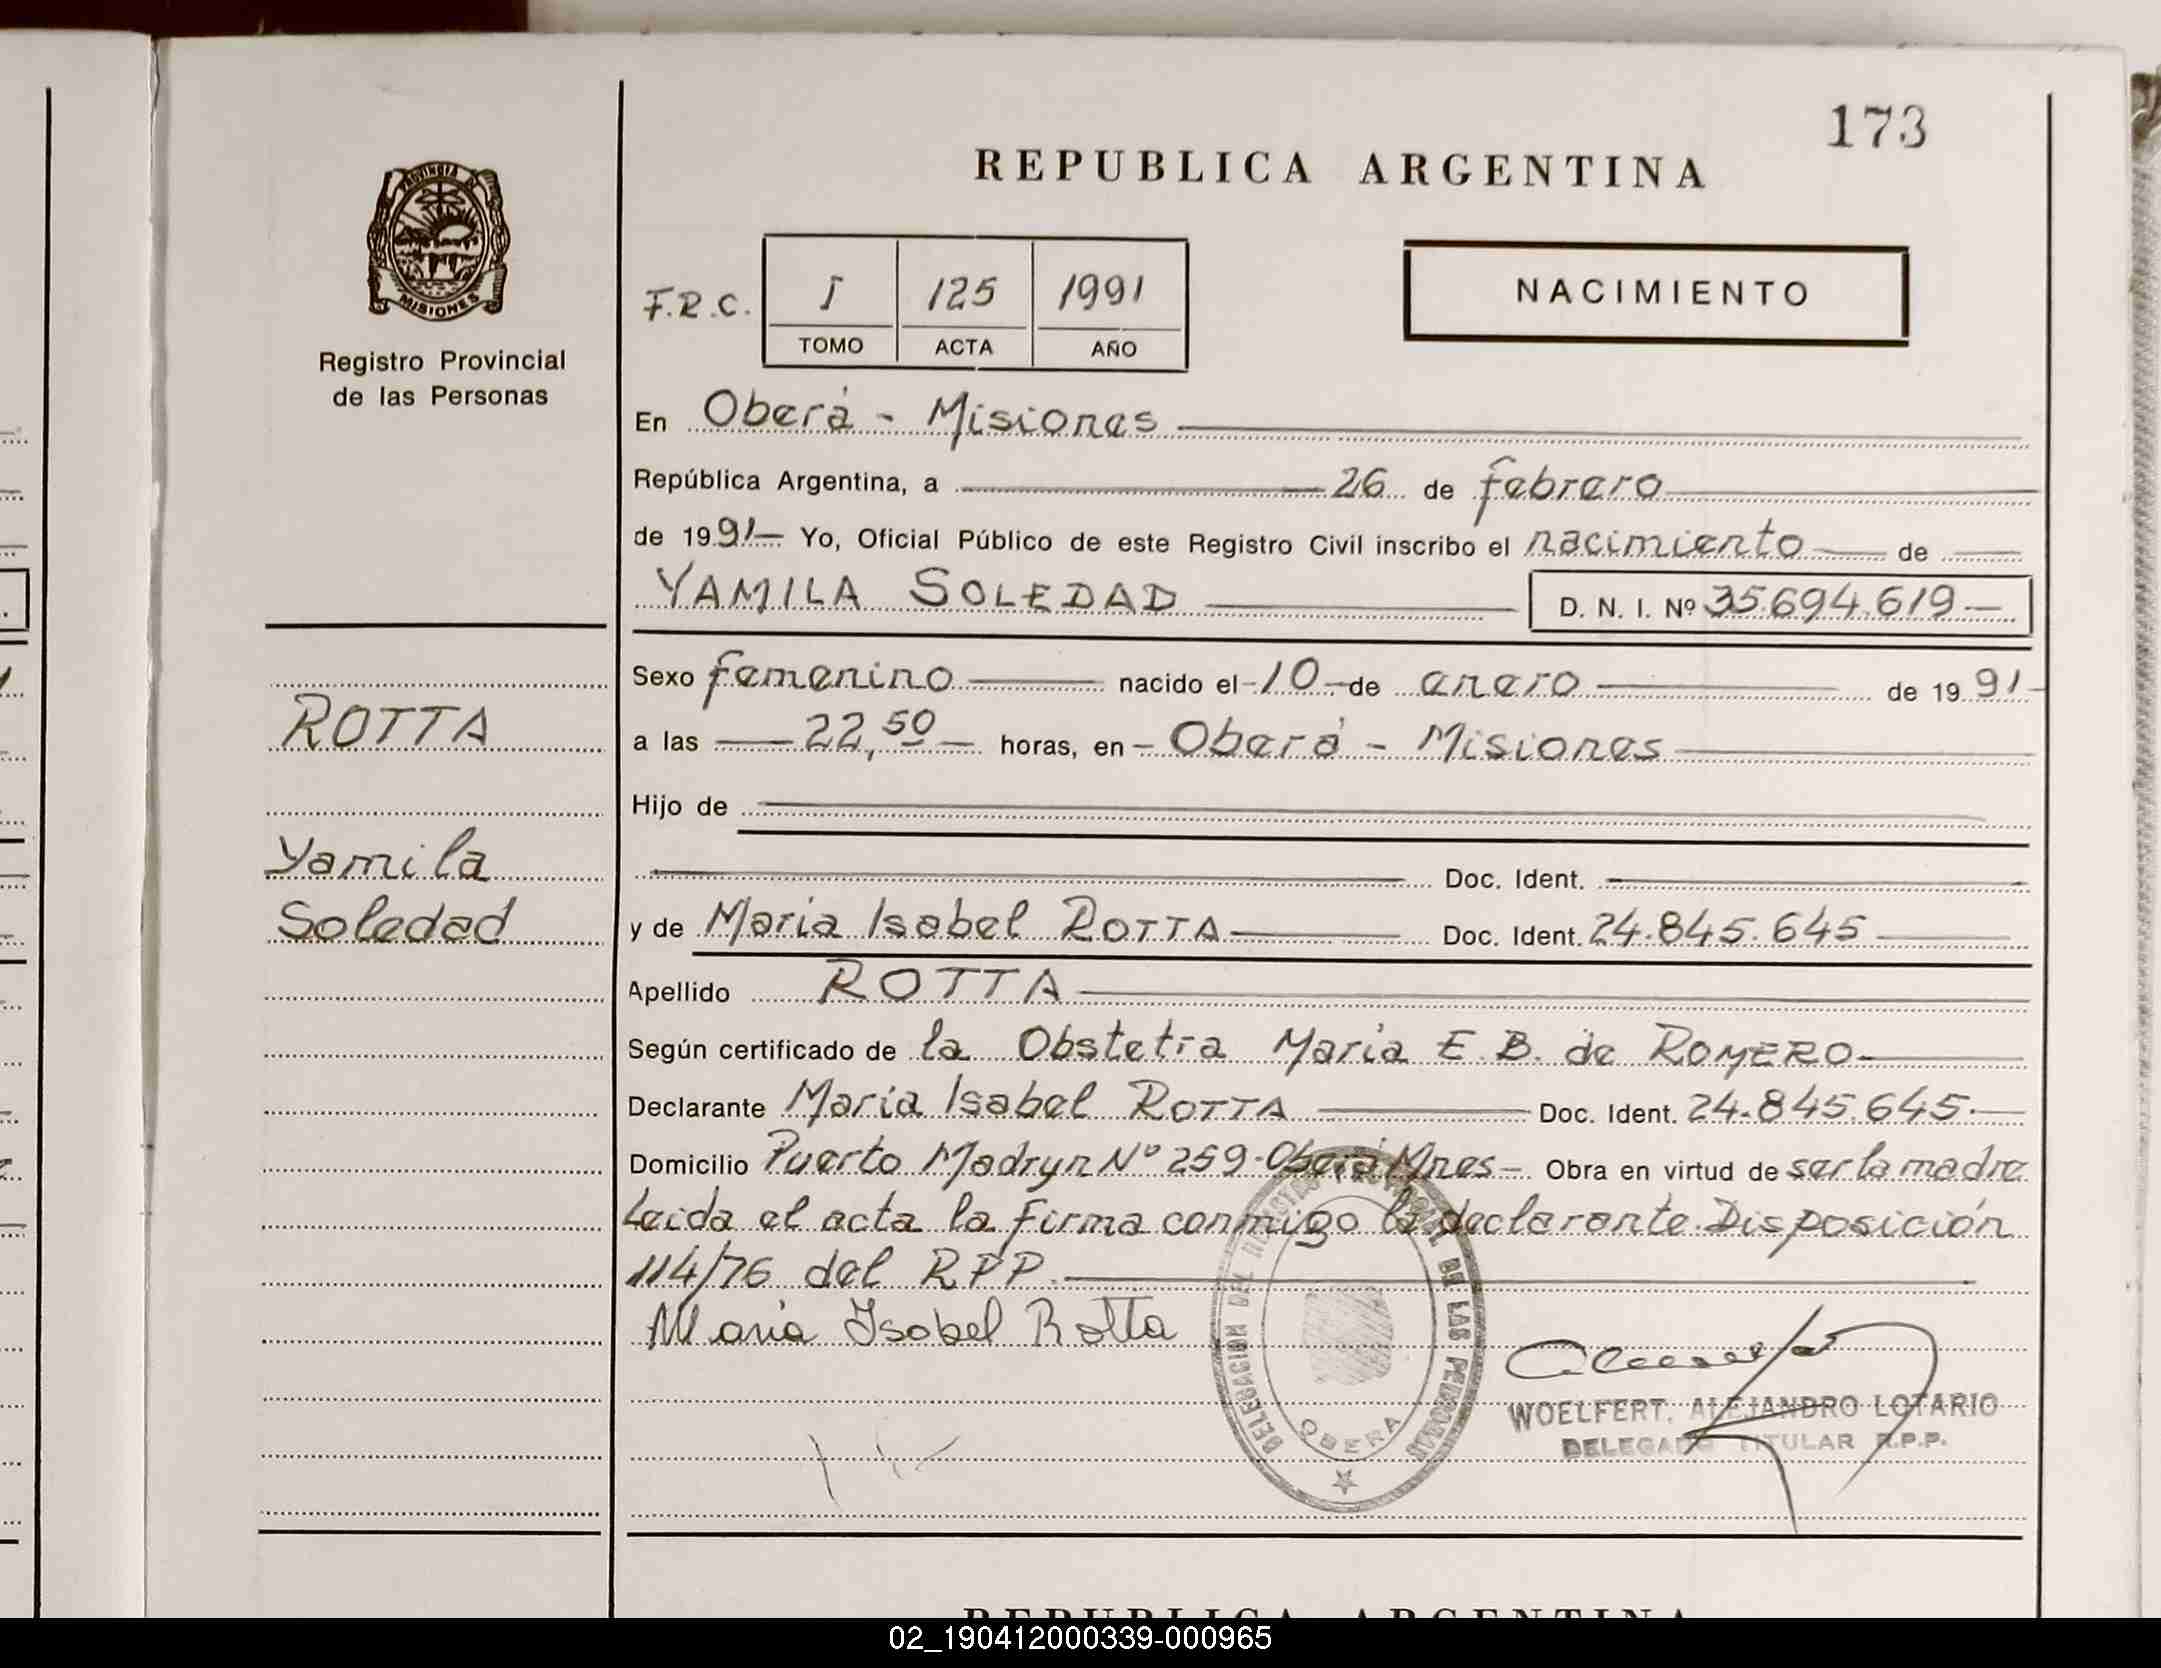 173
REPUBLICA ARGENTINA
PROVINCIA DE
MISIONES
Registro Provincial
de las Personas
F.R.C. I 125 1991
TOMO ACTA AÑO
NACIMIENTO
En Oberá - Misiones
República Argentina, a 26 de febrero
de 1991- Yo, Oficial Público de este Registro Civil inscribo el nacimiento de
YAMILA SOLEDAD D. N. I. Nº 35.694.619
Sexo femenino nacido el 10 de enero de 1991
ROTTA
a las 22,50 horas, en Oberá - Misiones
Hijo de
Yamila
Doc. Ident.
Soledad
y de Maria Isabel ROTTA Doc. Ident. 24.845.645
Apellido ROTTA
Según certificado de la Obstetra Maria E. B. de ROMERO
Declarante Maria Isabel ROTTA Doc. Ident. 24.845.645
Domicilio Puerto Madryn Nº 259-Oberá Mnes Obra en virtud de ser la madre
Leida el acta la firma conmigo la declarante. Disposición
114/76 del RPP.
Maria Isabel Rotta
DELEGACION DEL REGISTRO PROVINCIAL DE LAS PERSONAS
OBERA
WOELFERT, ALEJANDRO LOTARIO
DELEGADO TITULAR R.P.P.
REPUBLICA ARGENTINA
02_190412000339-000965